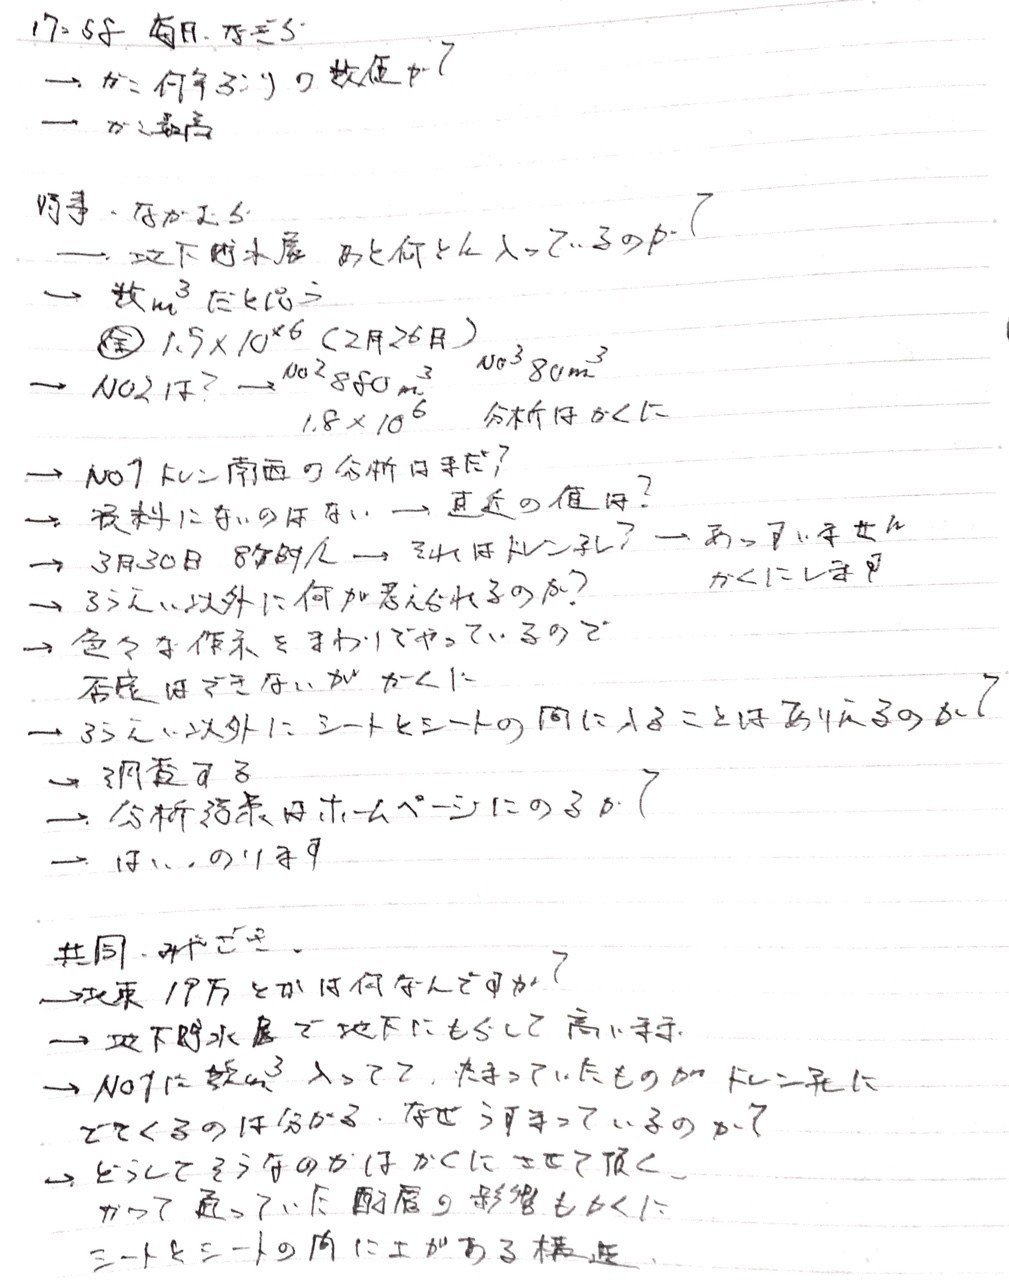 17:58 毎日.なぎら
→ かこ何年ぶりの数値か?
→ かこ最高
時事.なかむら
→ 地下貯水層 あと何とん入っているのか?
→ 数m³だと思う
全 1.5×10×6 (2月26日)
→ NO2は? → NO2 880m³ NO3 80m³
1.8×10⁶ 分析はかくに
→ NO1ドレン南西の分析はまだ?
→ 資料にないのはない → 直近の値は?
→ 3月30日 → それはドレン孔? → あっすいません
かくにします
→ ろうえい以外に何が考えられるのか?
→ 色々な作業をまわりでやっているので
否定はできないが かくに
→ ろうえい以外にシートとシートの間に入ることはありえるのか?
→ 調査する
→ 分析結果はホームページにのるか?
→ はい.のります
共同.みやざき.
→北東 19万とかは何なんですか?
→ 地下貯水層で地下にもらして高います.
→ NO1に数m³ 入ってて、たまっていたものが ドレン孔に
でてくるのは分かる.なぜうすまっているのか?
→ どうしてそうなのかはかくにさせて頂く
かつて通っていた配管の影響もかくに
シートとシートの間に土がある構造.